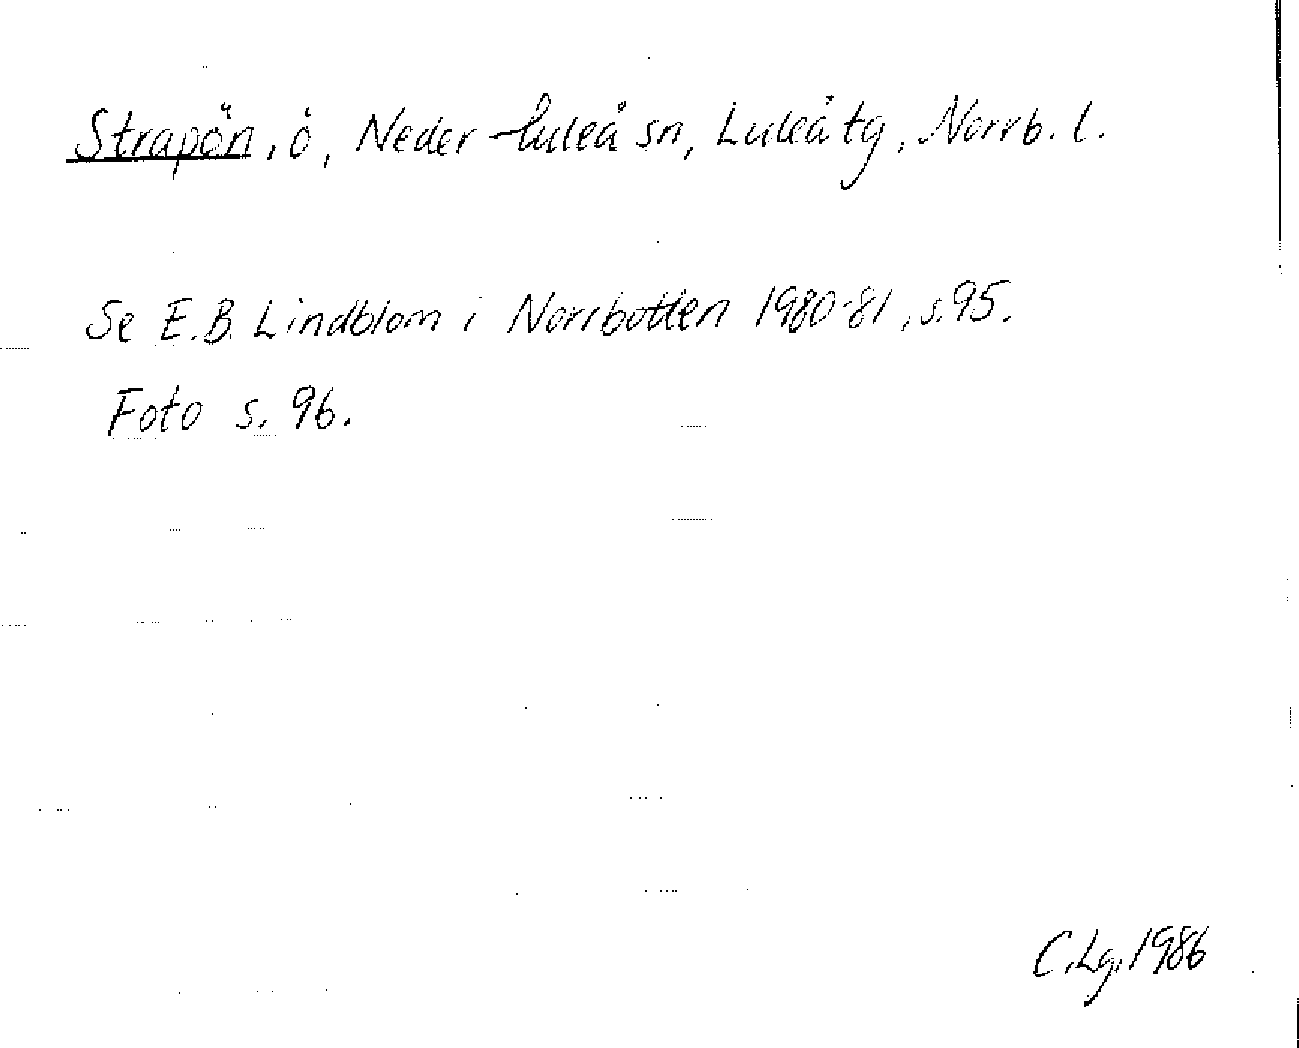 Strapön, ö, Neder-Luleå sn, Luleå tg, Norrb. l.
Se E.B. Lindblom i Norrbotten 1980-81, s. 95.
Foto s. 96.
C. Lg. 1986